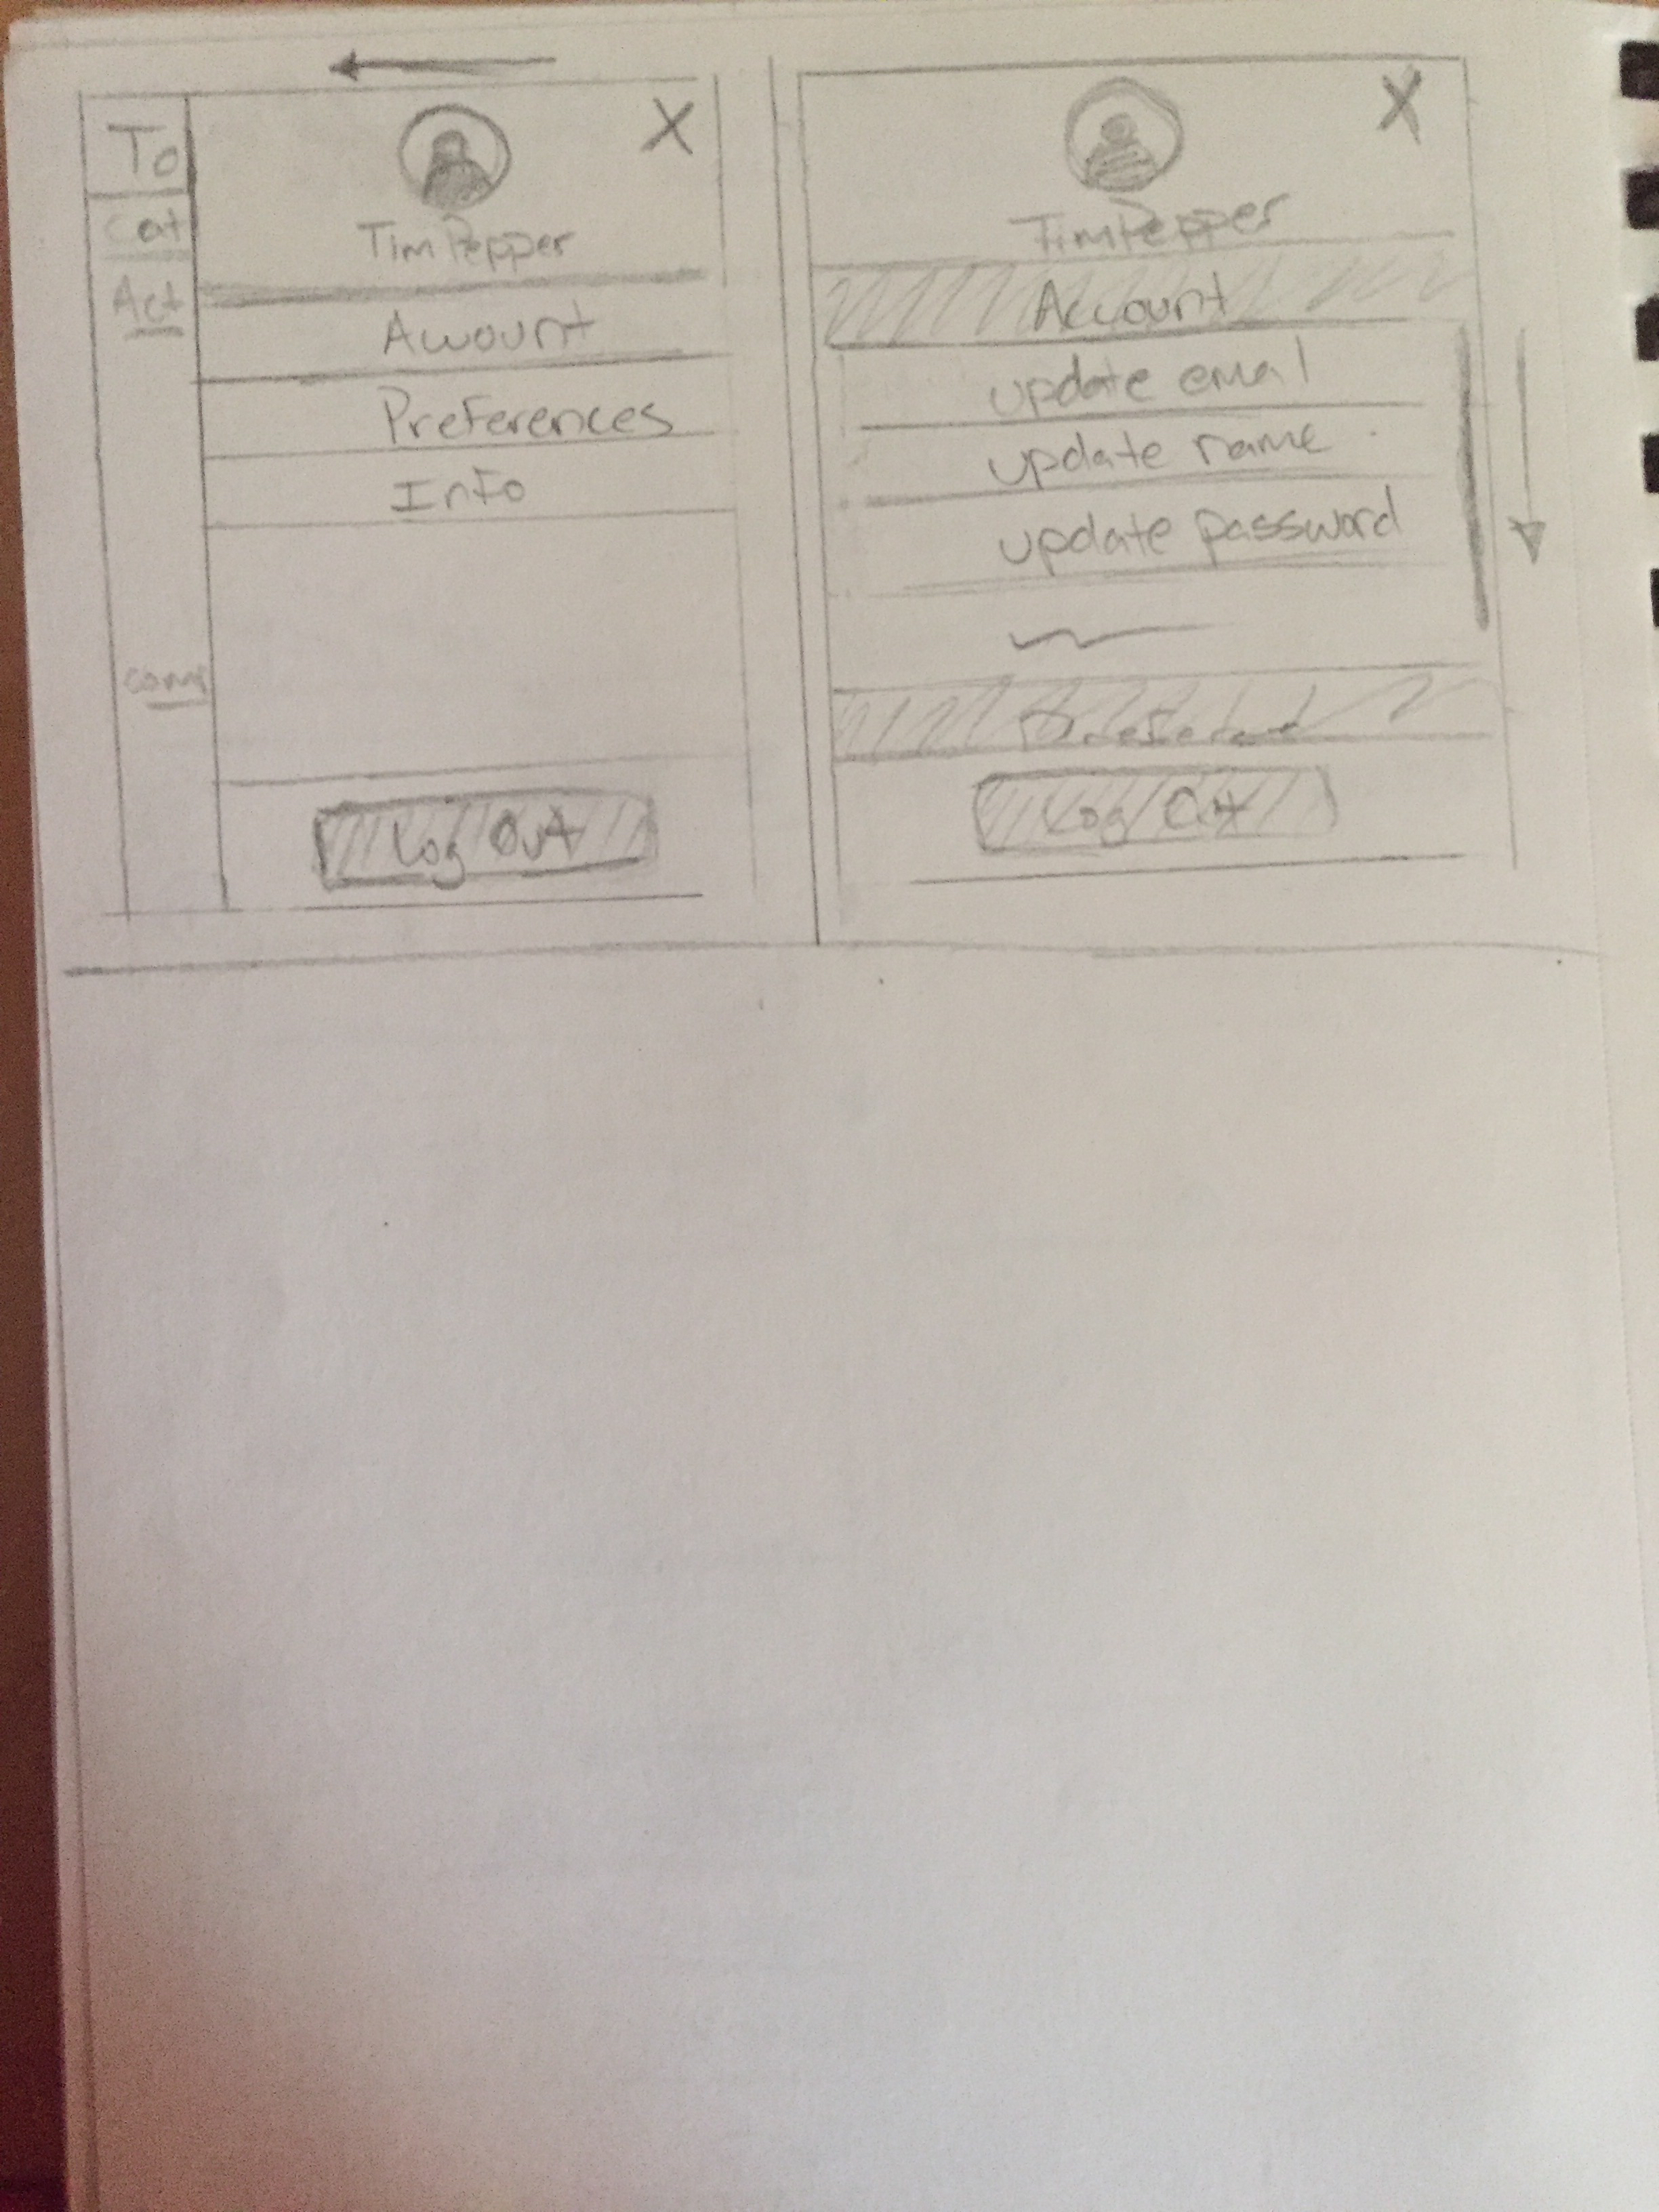 To
Cat
Act
com
X
Tim Pepper
Account
Preferences
Info
Log Out
X
Tim Pepper
Account
update emal
update name
update password
Log Out